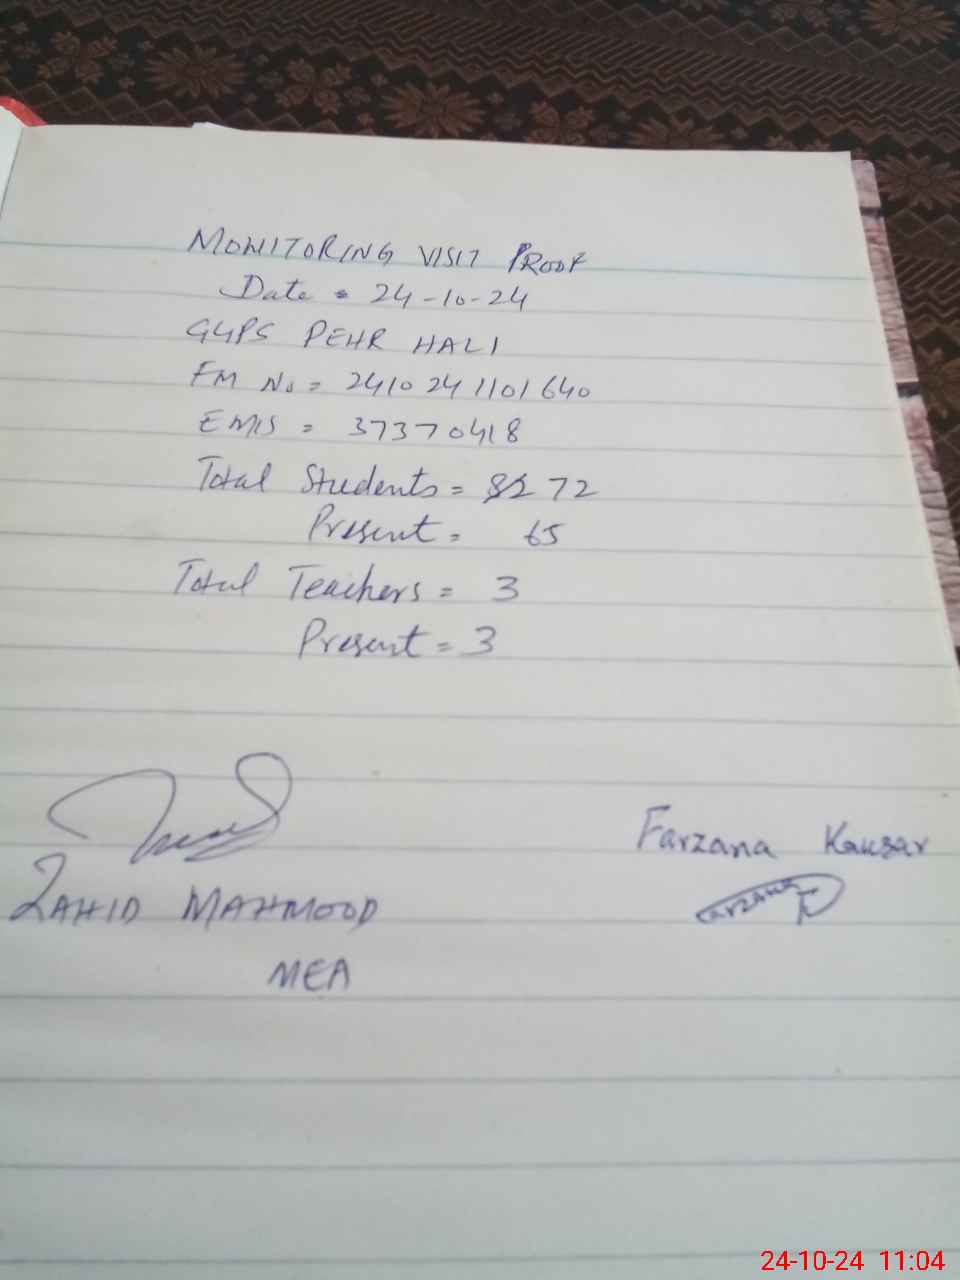 MONITORING VISIT PROOF
Date = 24-10-24
GGPS PEHR HALI
FM No = 2410241101640
EMIS = 37370418
Total Students = 82 72
Present = 65
Total Teachers = 3
Present = 3
Farzana Kausar
Farzana K
ZAHID MAHMOOD
MEA
24-10-24 11:04